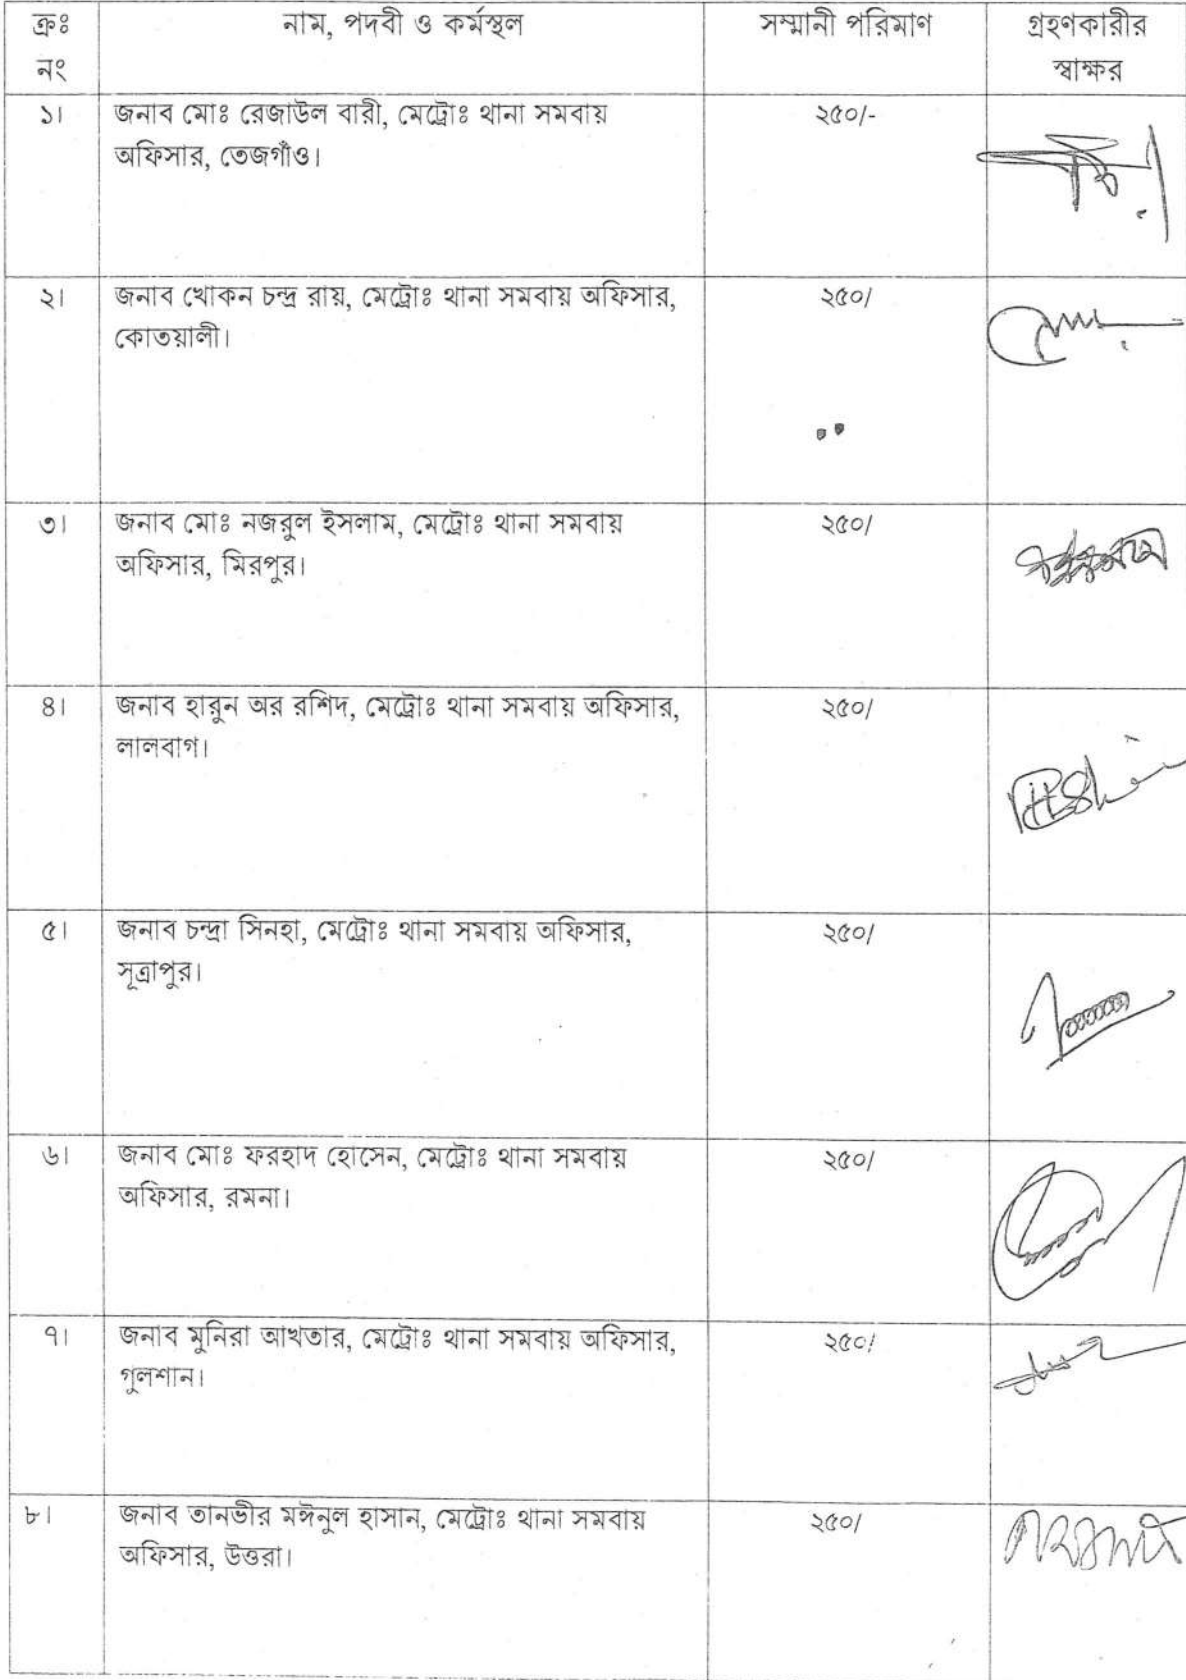 ক্রঃ নং নাম, পদবী ও কর্মস্থল সম্মানী পরিমাণ গ্রহণকারীর স্বাক্ষর
১। জনাব মোঃ রেজাউল বারী, মেট্রোঃ থানা সমবায় ২৫০/-
অফিসার, তেজগাঁও।
২। জনাব খোকন চন্দ্র রায়, মেট্রোঃ থানা সমবায় অফিসার, ২৫০/
কোতয়ালী।
৩। জনাব মোঃ নজরুল ইসলাম, মেট্রোঃ থানা সমবায় ২৫০/
অফিসার, মিরপুর।
৪। জনাব হারুন অর রশিদ, মেট্রোঃ থানা সমবায় অফিসার, ২৫০/
লালবাগ।
৫। জনাব চন্দ্রা সিনহা, মেট্রোঃ থানা সমবায় অফিসার, ২৫০/
সূত্রাপুর।
৬। জনাব মোঃ ফরহাদ হোসেন, মেট্রোঃ থানা সমবায় ২৫০/
অফিসার, রমনা।
৭। জনাব মুনিরা আখতার, মেট্রোঃ থানা সমবায় অফিসার, ২৫০/
গুলশান।
৮। জনাব তানভীর মঈনুল হাসান, মেট্রোঃ থানা সমবায় ২৫০/
অফিসার, উত্তরা।